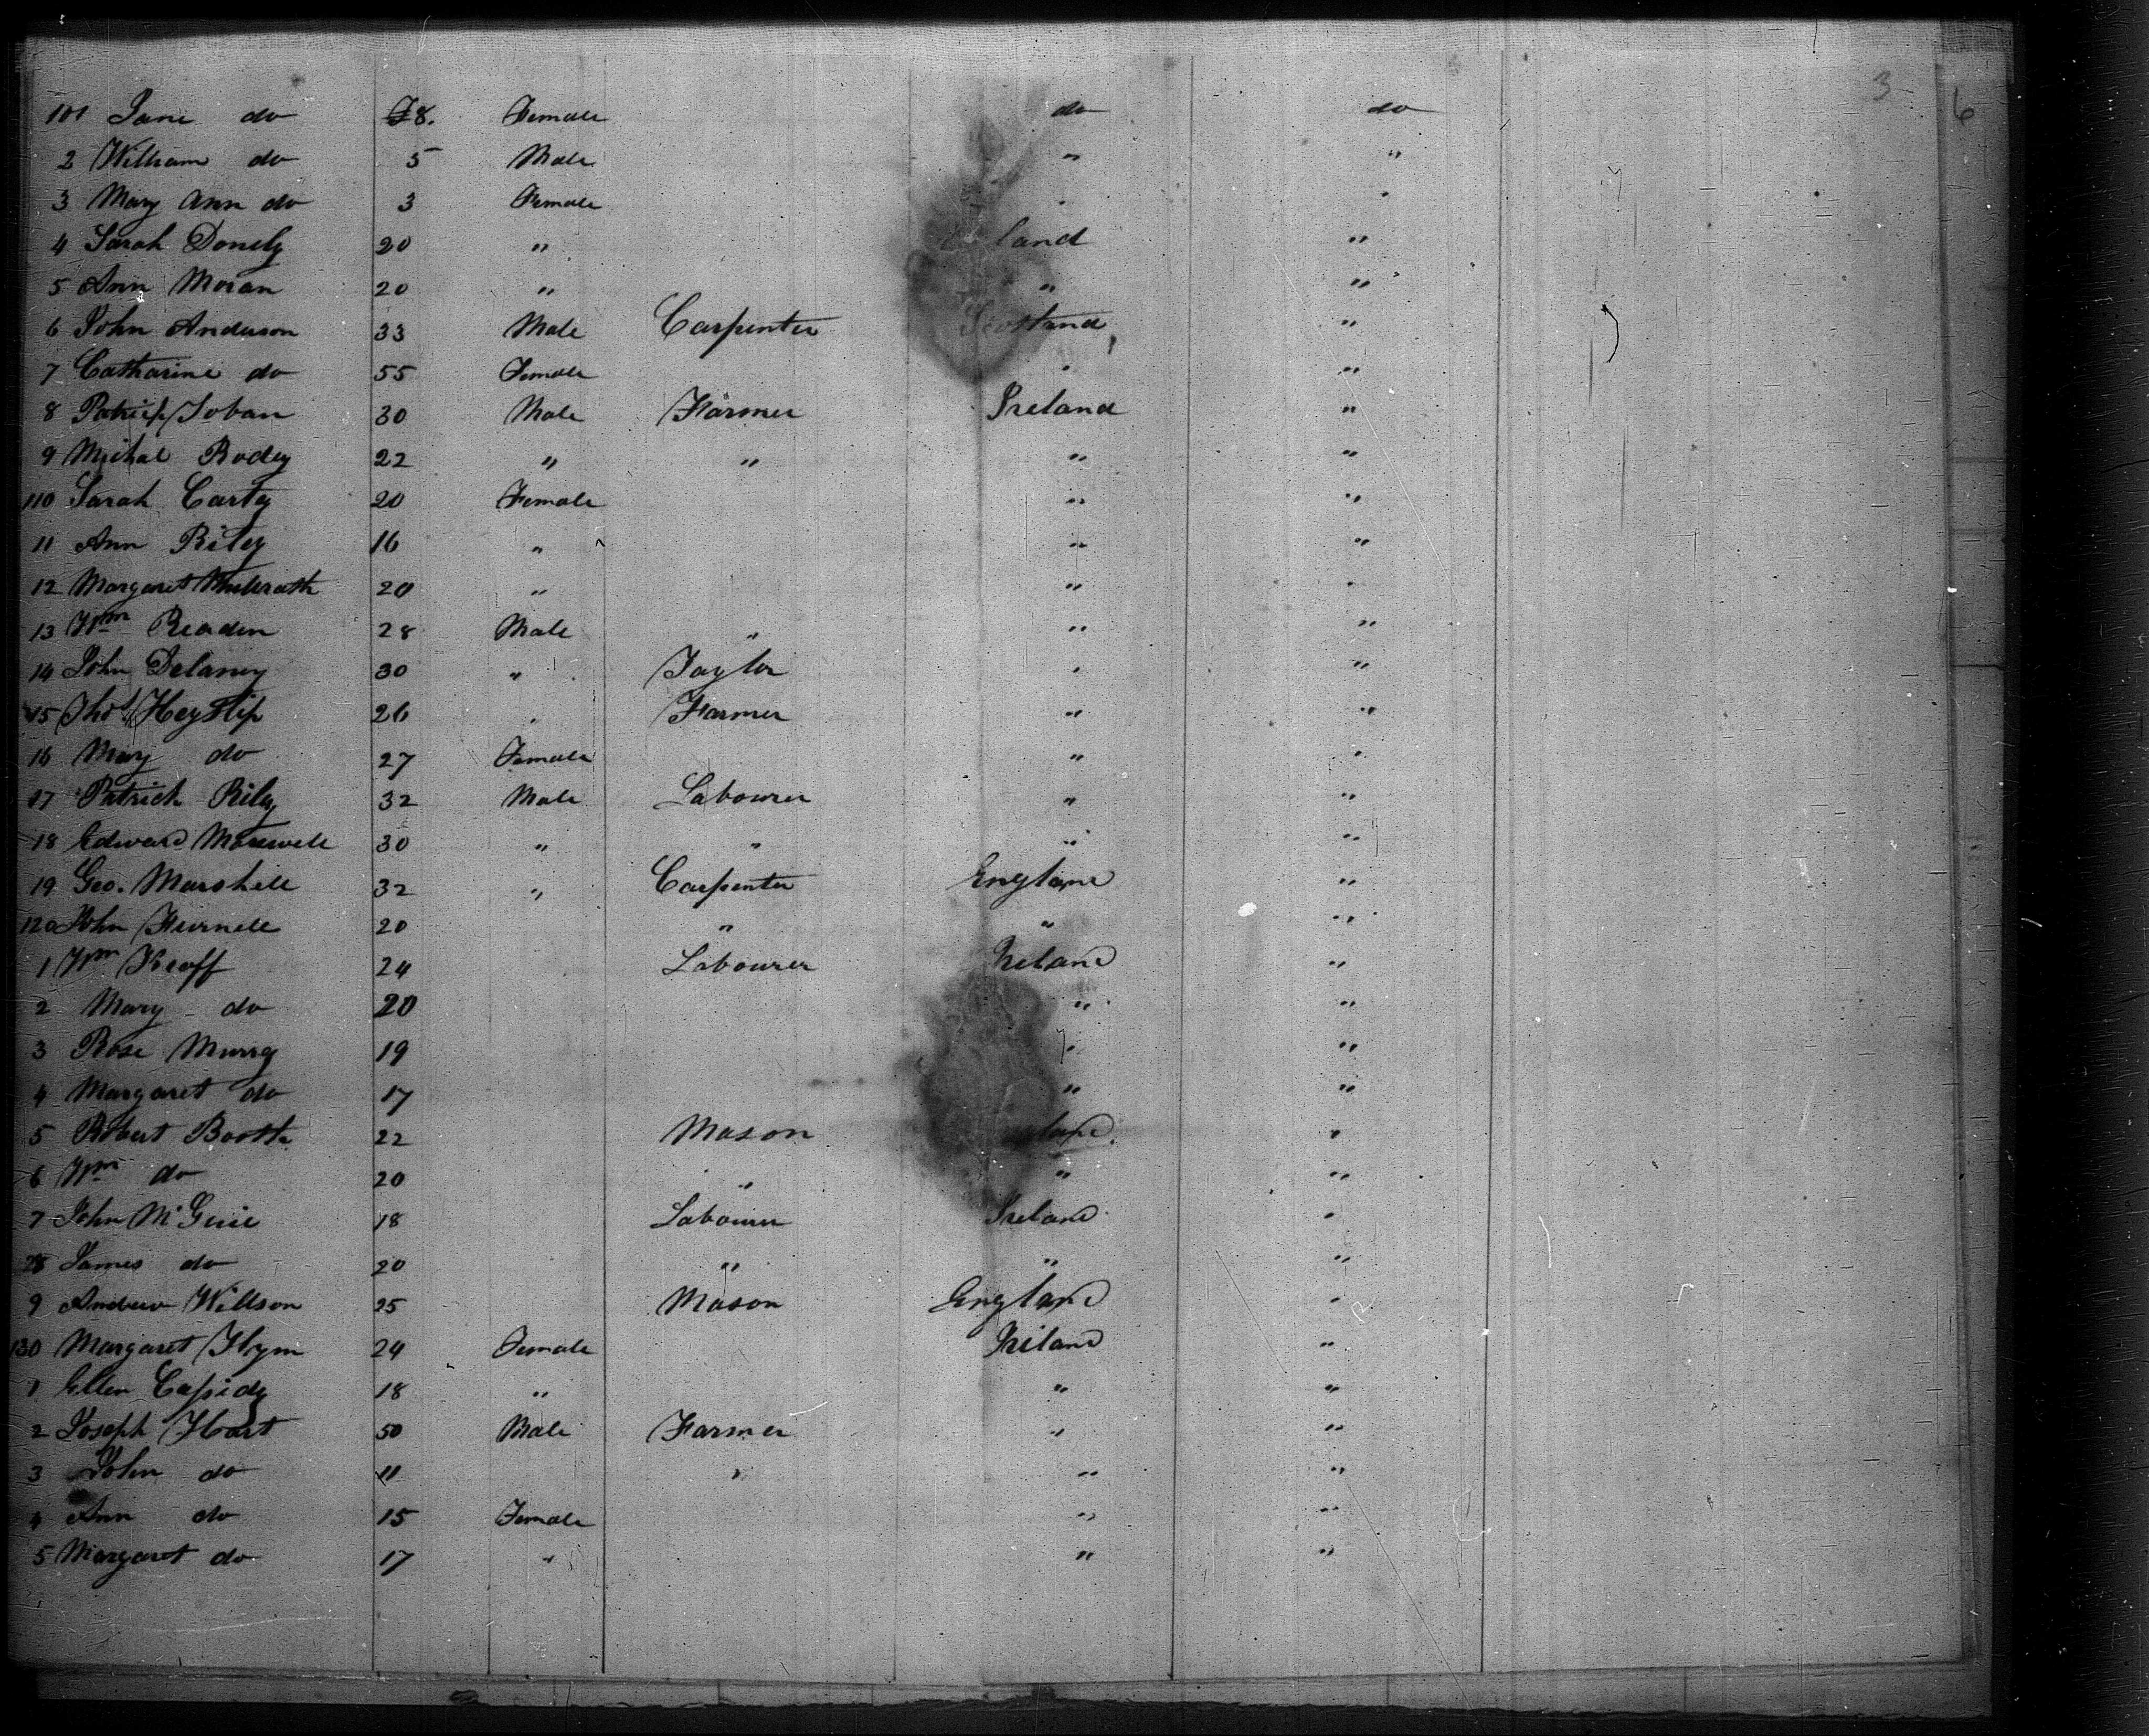 3 6
101 Jane do 8. Female do do
2 William do 5 Male " "
3 Mary Ann do 3 Female " "
4 Sarah Donely 20 " land "
5 Ann Moran 20 " " "
6 John Anderson 33 Male Carpenter Scotland "
7 Catharine do 55 Female " "
8 Patrick Toban 30 Male Farmer Ireland "
9 Michal Rodey 22 " " " "
110 Sarah Carty 20 Female " "
11 Ann Riley 16 " " "
12 Margaret 20 " " "
13 Wm Readen 28 Male " " "
14 John Delaney 30 " Taylor " "
15 Thos Heyslip 26 " Farmer " "
16 Mary do 27 Female " "
17 Patrick Rily 32 Male Labourer " "
18 Edward 30 " " " "
19 Geo. Marshell 32 " Carpenter England "
120 John 20 " " "
1 Wm Kroff 24 Labourer Ireland "
2 Mary do 20 " "
3 Rose Murry 19 " "
4 Margaret do 17 " "
5 Robert Booth 22 Mason "
6 Wm do 20 " " "
7 John McGuie 18 Labourer Ireland "
28 James do 20 " " "
9 Andrew Willson 25 Mason England "
130 Margaret Flynn 24 Female Ireland "
1 Ellen Cassidy 18 " " "
2 Joseph Hart 50 Male Farmer " "
3 John do 11 " " "
4 Ann do 15 Female " "
5 Margaret do 17 " " "